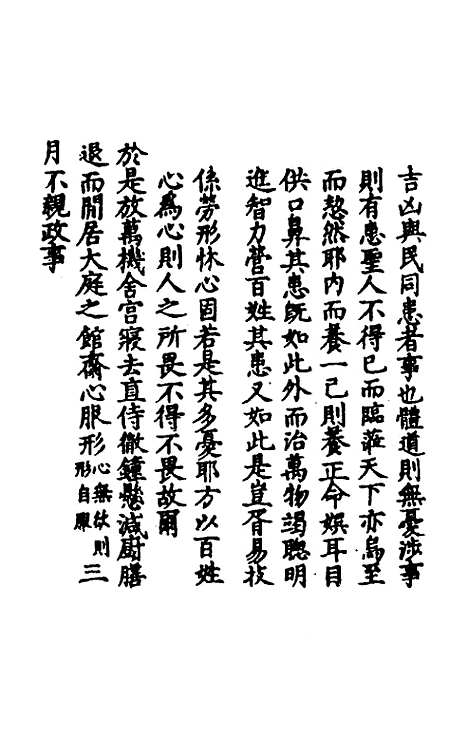 吉凶與民同患者事也體道則無憂涉事
則有患聖人不得已而臨莅天下亦烏至
而愁然耶内而養一己則養正命娯耳目
供口鼻其患既如此外而治萬物竭聰明
進智力營百姓其患又如此是豈胥易技
係勞形怵心固若是其多憂耶方以百姓
心為心則人之所畏不得不畏故爾
於是放萬機舍宫寢去直侍徹鐘懸減厨膳
退而閒居大庭之館齋心服形心無欲則形自服三
月不親政事